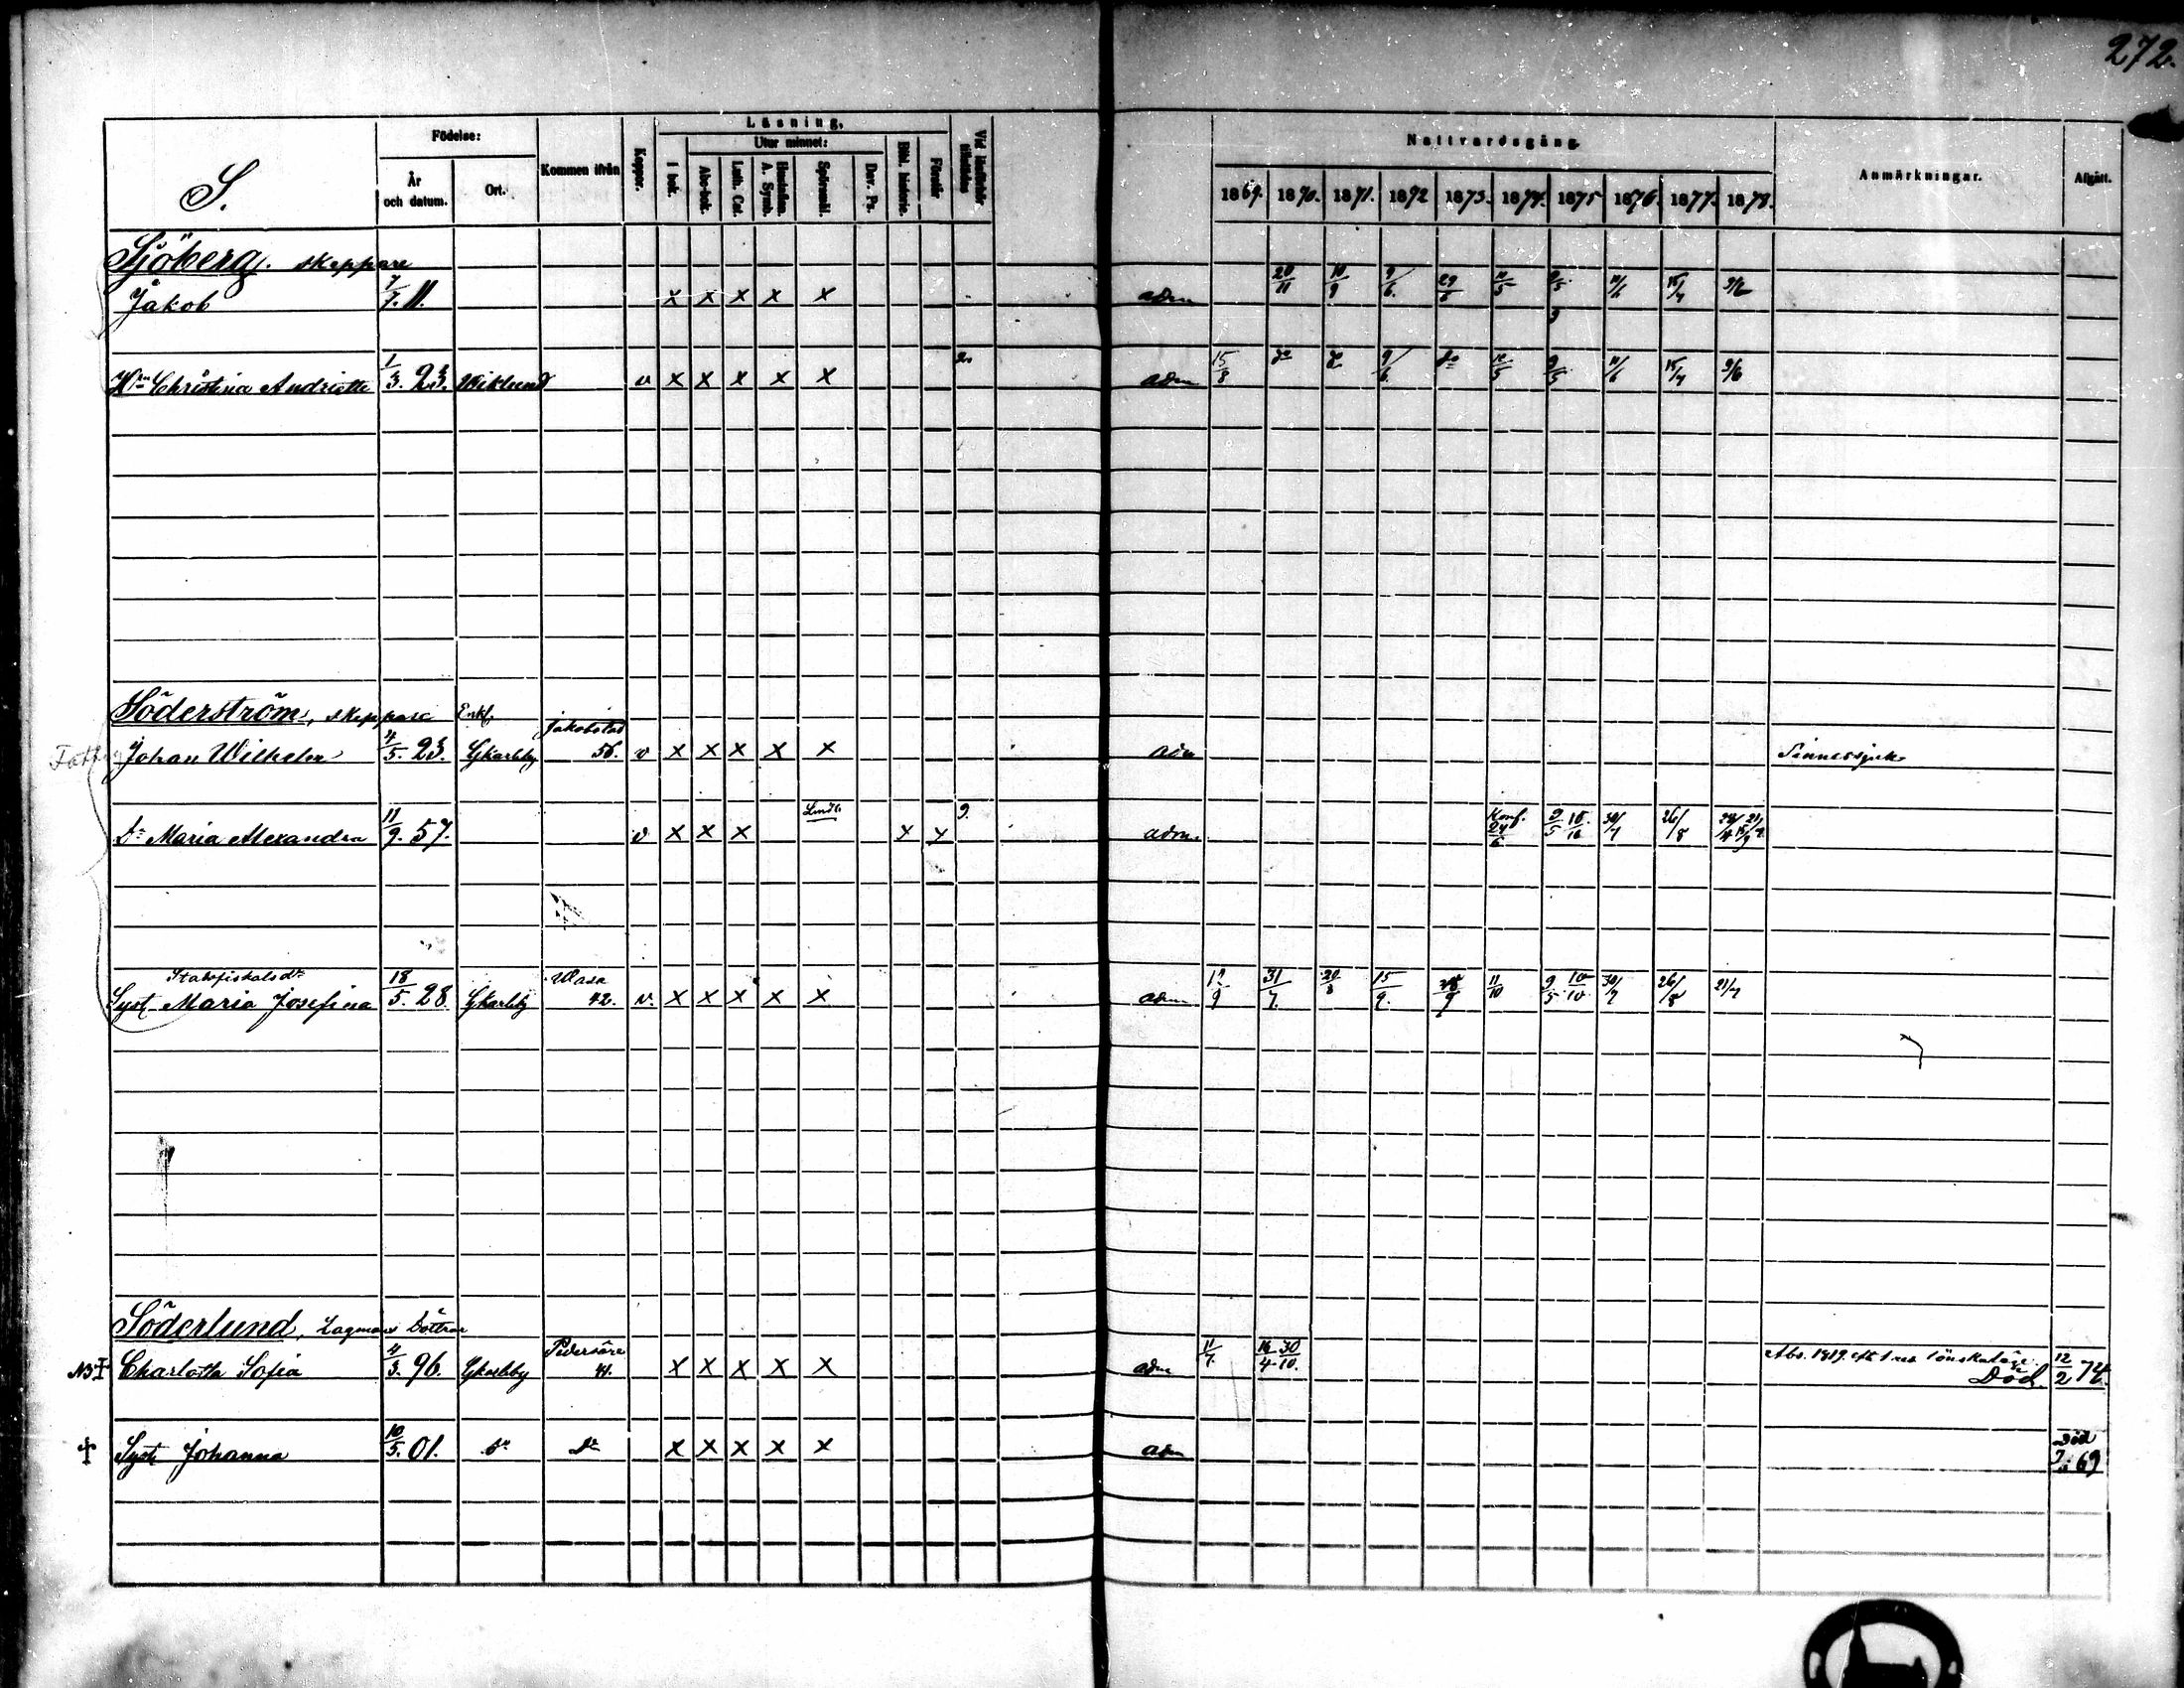 272.
S.
Födelse:
År och datum.
Ort.
Kommen ifrån
Koppor.
Läsning,
I bok.
Utur minnet:
Abc-bok.
Luth. Cat.
Hustaflan. A. Symb.
Spörsmål.
Dav. Ps.
Bibl. historie.
Förstår
Nattvardsgång.
1869. 1870. 1871. 1872 1873. 1874. 1875 1876. 1877. 1878.
Anmärkningar.
Afgått.
Sjöberg. skeppare
Jakob 7/7. 11. x x x x x adm 20/11 10/9 9/6. 29/6 10/5 9/5 11/6 15/7 9/6
Hn Christina Andriette 1/3. 23. Wiklund v x x x x x 2. adm 15/8 do do 9/6. do 10/5 9/5 11/6 15/7 9/6
Söderström, skeppare Enkl.
Johan Wilhelm 4/5. 23. Gkarleby Jakobstad 56. v x x x x x adm Sinnessjuk
Dr Maria Alexandra 11/9. 57. v x x x x x 9. adm. Konf. 24/6 9/5 10/10 30/7 26/8
Stadsfiskals dr
Syst. Maria Josefina 18/5. 28. Gkarleby Wasa 42. v. x x x x x adm 31/7. 20/8 15/9. 28/9 11/10 9/5 10/10 30/7 26/8 21/7
Söderlund, Lagmans Döttrar
NB † Charlotta Sofia 4/3. 96. Gkarleby Pedersöre 41. x x x x x adm 11/7. 16/4 30/10. Abs. 1819. eft. 1 res lönskaläge. Död. 12/2 74.
† Syst. Johanna 10/5. 01. do do x x x x x adm Död 69